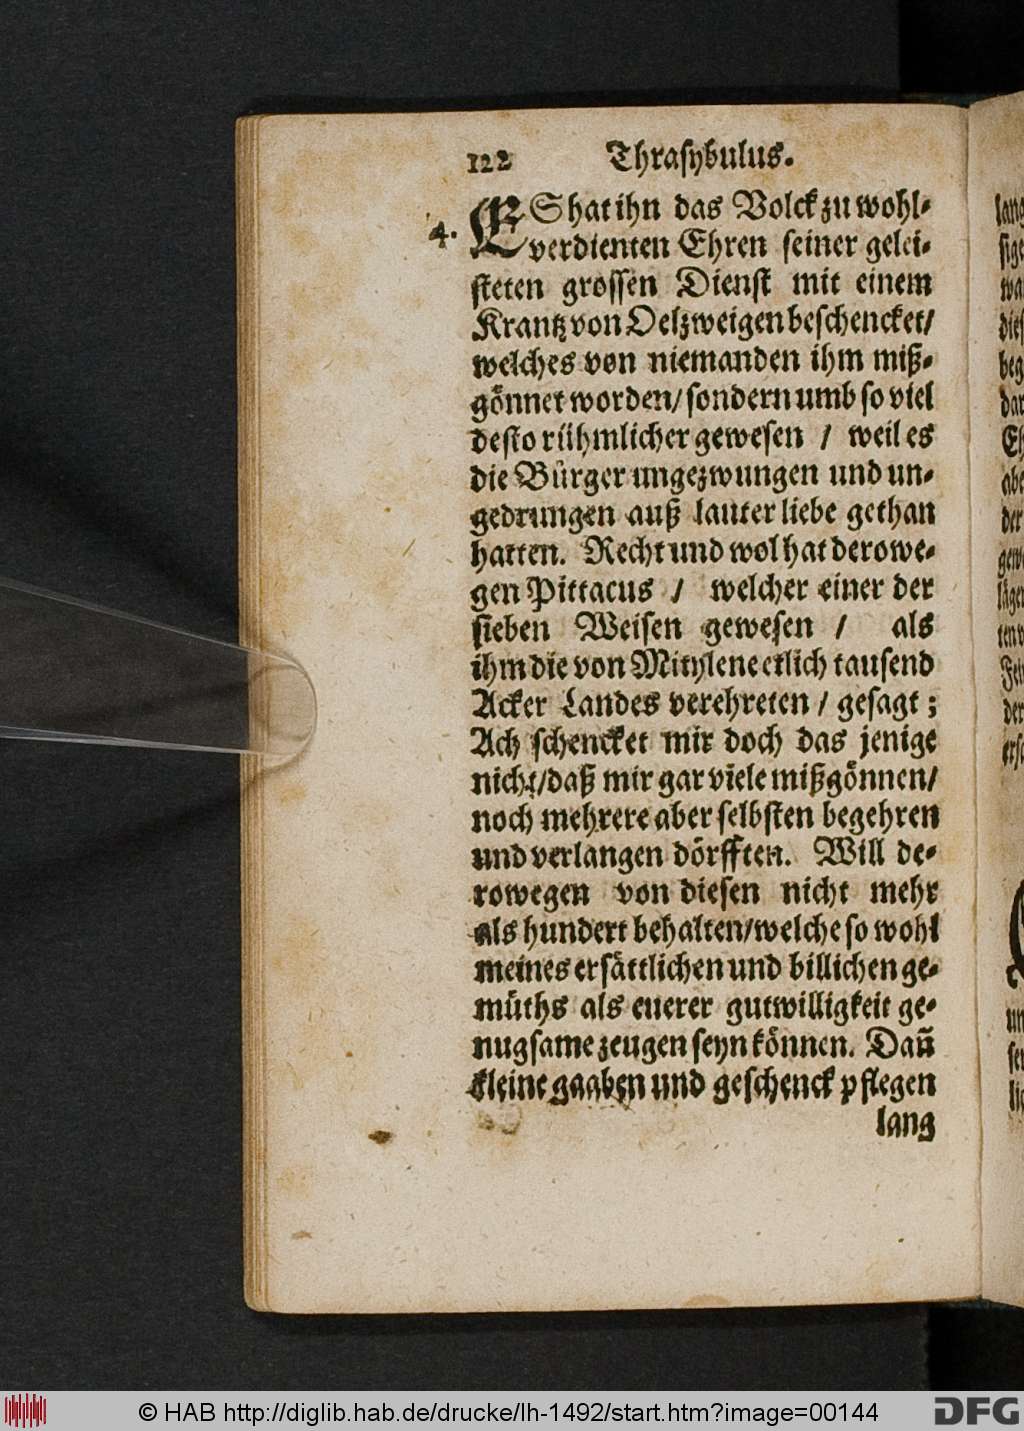 122 Thrasybulus.
4. ES hat ihn das Volck zu wohl-
verdienten Ehren seiner gelei-
steten grossen Dienst mit einem
Krantz von Oelzweigen beschencket/
welches von niemanden ihm miß-
gönnet worden/ sondern umb so viel
desto rühmlicher gewesen / weil es
die Bürger ungezwungen und un-
gedrungen auß lauter liebe gethan
hatten. Recht und wol hat derowe-
gen Pittacus / welcher einer der
sieben Weisen gewesen / als
ihm die von Mitylene etlich tausend
Acker Landes verehreten / gesagt ;
Ach schencket mir doch das jenige
nicht/daß mir gar viele mißgönnen/
noch mehrere aber selbsten begehren
und verlangen dörfften. Will de-
rowegen von diesen nicht mehr
als hundert behalten/welche so wohl
meines ersättlichen und billichen ge-
müths als euerer gutwilligkeit ge-
nugsame zeugen seyn können. Dañ
kleine gaaben und geschenck pflegen
lang
© HAB http://diglib.hab.de/drucke/lh-1492/start.htm?image=00144
DFG